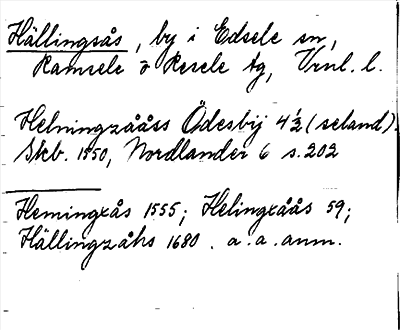 Hällingsås, by i Edsele sn,
Ramsele o Resele tg, Vrnl. l.
Helningzååss Ödesbÿ 4½ (seland).
Skb. 1550, Nordlander 6 s. 202
Hemingxås 1555; Helingxåås 59;
Hällingzåhs 1680. a. a. anm.